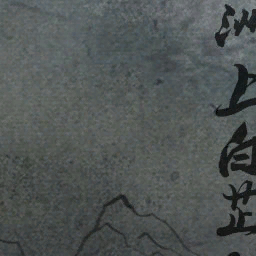 洲上白芷